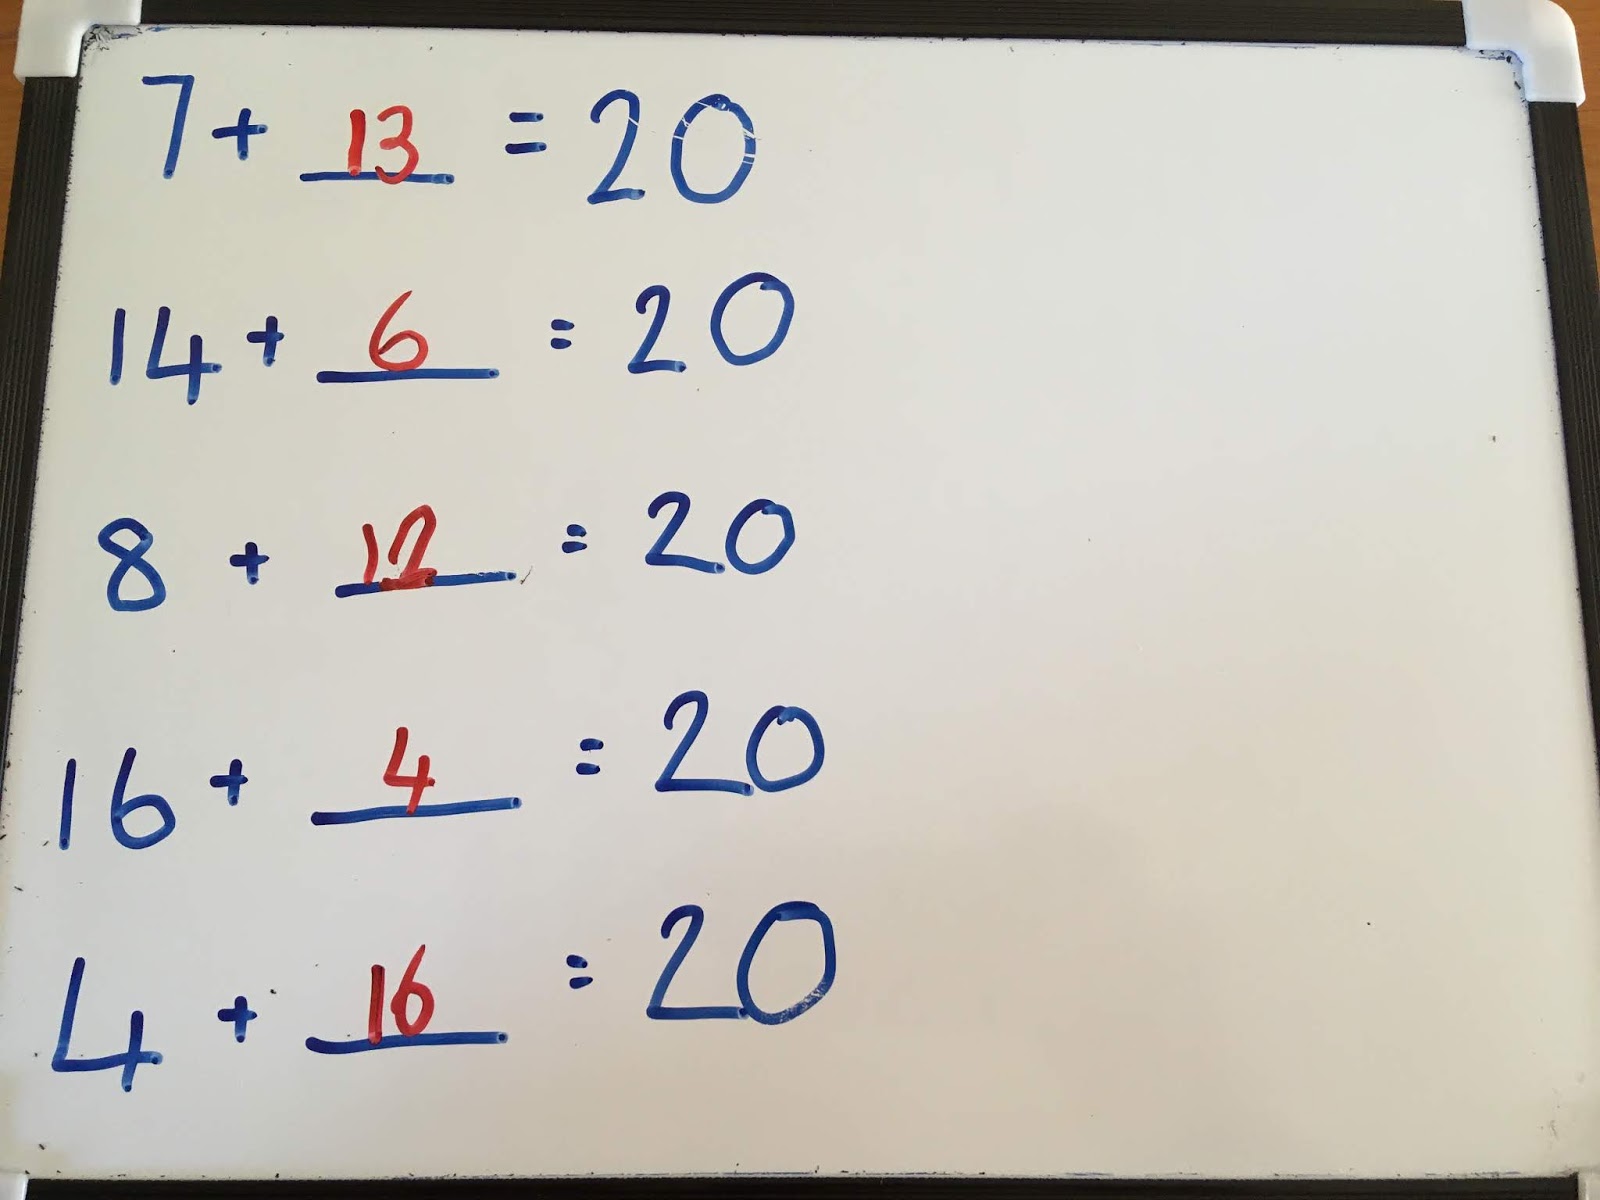 7 + 13 = 20
14 + 6 = 20
8 + 12 = 20
16 + 4 = 20
4 + 16 = 20